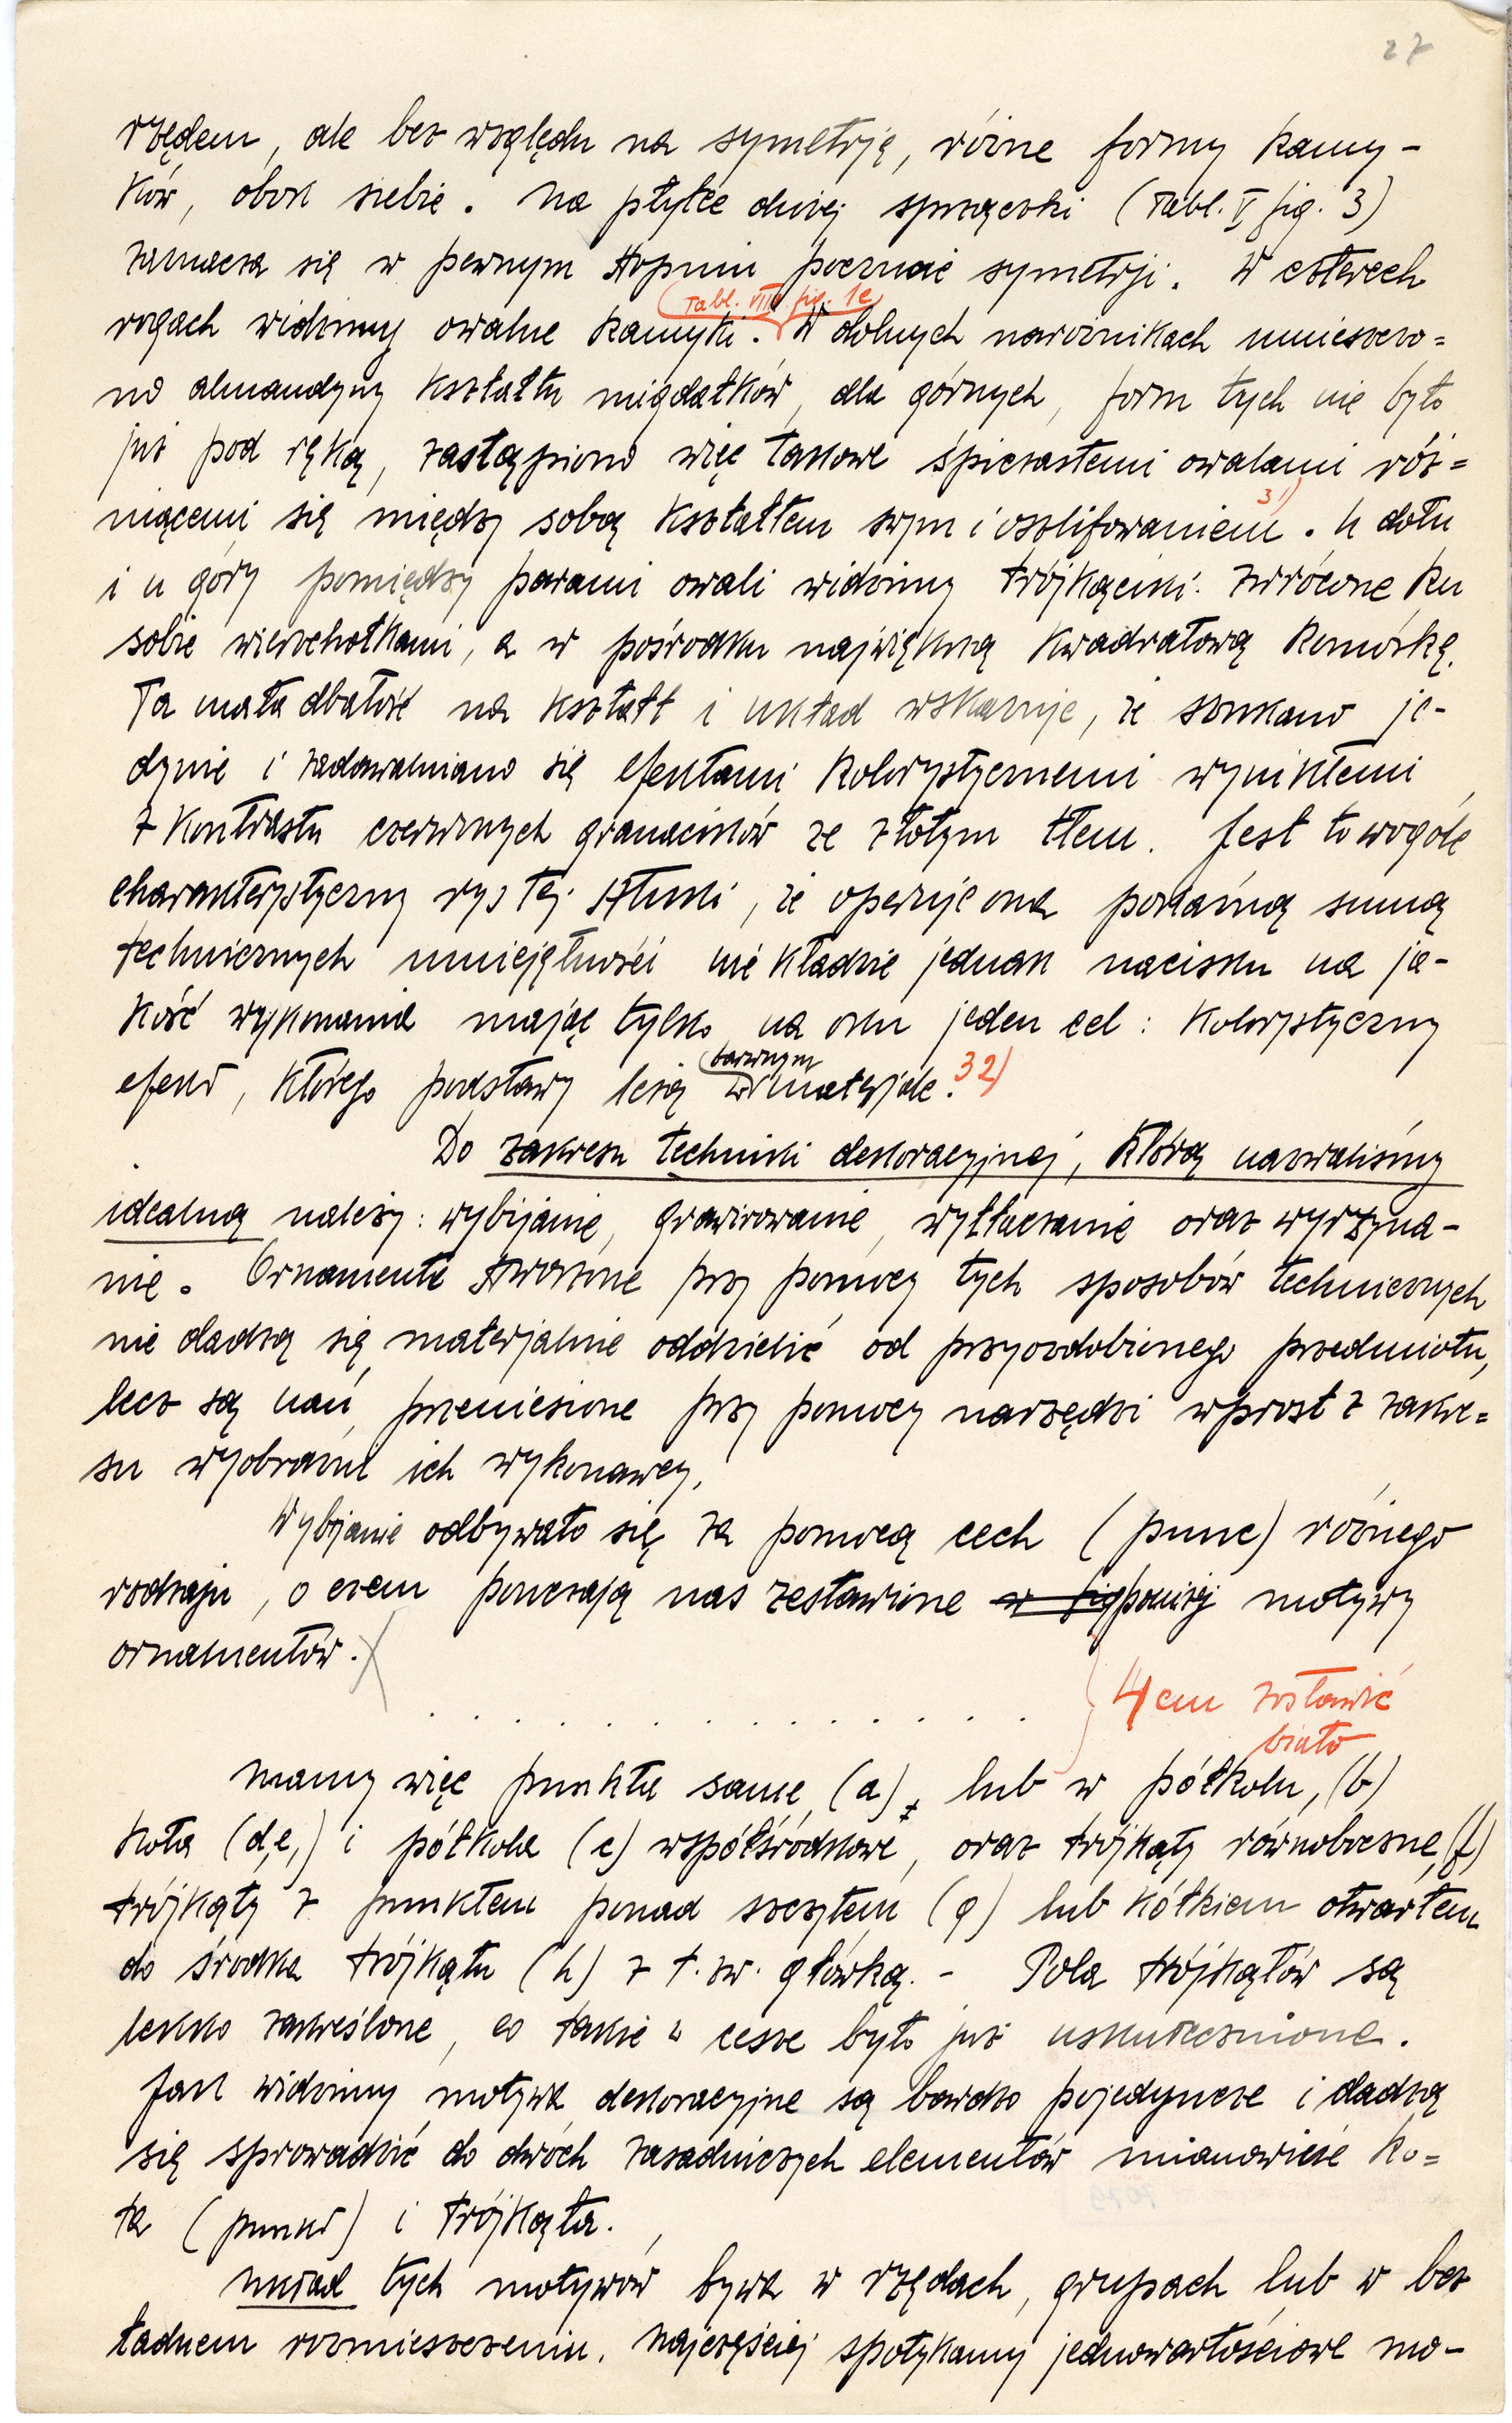 27
rzędem, ale bez względu na symetrję, różne formy kamy-
ków, obok siebie. Na płytce dużej sprzączki (Tabl. V fig. 3)
zaznacza się w pewnym stopniu poczucie symetrji. W czterech
(Tabl. VIII fig. 1e)
rogach widzimy owalne kamyki. W dolnych narożnikach umieszczo=
no almandyny kształtu migdałków, dla górnych, form tych nie było
już pod ręką, zastąpiono więc takowe śpiczastemi owalami róż=
niącemi się między sobą kształtem swym i oszlifowaniem 31). U dołu
i u góry pomiędzy parami owali widzimy trójkąciki zwrócone ku
sobie wierzchołkami, a w pośrodku największą kwadratową komórkę.
Ta mała dbałość na kształt i układ wskazuje, że szukano je-
dynie i zadawalniano się efektami kolorystycznemi wynikłemi
z kontrastu czerwonych granacików ze złotym tłem. Jest to wogóle
charakterystyczny rys tej sztuki, że operuje ona pokaźną sumą
technicznych umiejętności nie kładzie jednak nacisku na ja-
kość wykonania mając tylko na oku jeden cel: kolorystyczny
barwnym
efekt, którego podstawy leżą w materjale. 32)
Do zakresu techniki dekoracyjnej, którą nazwaliśmy
idealną należy: wybijanie, grawirowanie, wytłaczanie oraz wyrzyna-
nie. Ornamenta stworzone przy pomocy tych sposobów technicznych
nie dadzą się materjalnie oddzielić od przyozdobionego przedmiotu,
lecz są nań przeniesione przy pomocy narzędzi wprost z zakre=
su wyobraźni ich wykonawcy.
Wybijanie odbywało się za pomocą cech (punc) różnego
rodzaju, o czem pouczają nas zestawione w fig poniżej motywy
ornamentów.
. . . . . . . . . . . . . . .
4 cm zostawić
biało
Mamy więc punkta same (a), lub w półkolu, (b)
koła (d,e,) i półkola (c) współśrodkowe, oraz trójkąty równoboczne, (f)
trójkąty z punktem ponad szczytem (g) lub kółkiem otwartem
do środka trójkąta (h) z t. zw. główką. - Pola trójkątów są
lekko zakreślone, co także w cesze było już uskutecznione.
Jak widzimy motywa dekoracyjne są bardzo pojedyncze i dadzą
się sprowadzić do dwóch zasadniczych elementów mianowicie ko=
ła (punkt) i trójkąta.
Układ tych motywów bywa w rzędach, grupach lub w bez
ładnem rozmieszczeniu. Najczęściej spotykamy jednowartościowe mo-